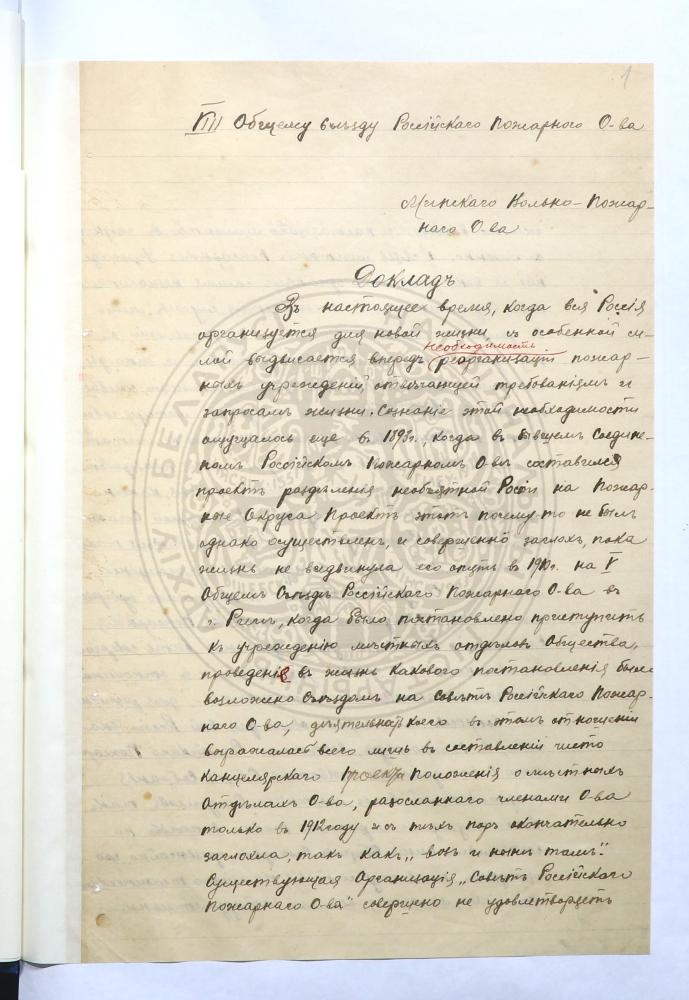 1
VIII Общему Съѣзду Россійскаго Пожарнаго О-ва
Минскаго Вольно-Пожар-
наго О-ва
Докладъ
Въ настоящее время, когда вся Россія
организуется для новой жизни съ особенной си-
лой выдвигается впередъ необходимость реорганизаціи пожар-
ныхъ учрежденій, отвѣчающей требованіямъ и
запросамъ жизни. Сознаніе этой необходимости
ощущалось еще въ 1893г., когда въ бывшемъ Соедине-
номъ Россійскомъ Пожарномъ О-вѣ составился
проектъ раздѣленія необъятной Россіи на Пожар-
ные Округа. Проектъ этотъ почему то не былъ
однако осуществленъ, и совершенно заглохъ, пока
жизнь не выдвинула его опять въ 1910г. на V
Общемъ Съѣздѣ Россійскаго Пожарнаго О-ва въ
г. Ригѣ, когда было постановлено приступить
къ учрежденію мѣстныхъ отдѣловъ Общества,
проведеніе въ жизнь каковаго постановленія было
возложено Съѣздомъ на совѣтъ Россійскаго Пожар-
наго О-ва, дѣятельность коего въ этомъ отношеніи
выражалась всего лишь въ составленіи чисто
канцелярскаго проекта положенія о мѣстныхъ
отдѣлахъ О-ва, разосланнаго членами О-ва
только въ 1912 году и съ тѣхъ поръ окончательно
заглохла, такъ какъ „возъ и нынѣ тамъ".
Существующая организація „Совѣтъ Россійскаго
Пожарнаго О-ва" совершено не удовлетворяетъ